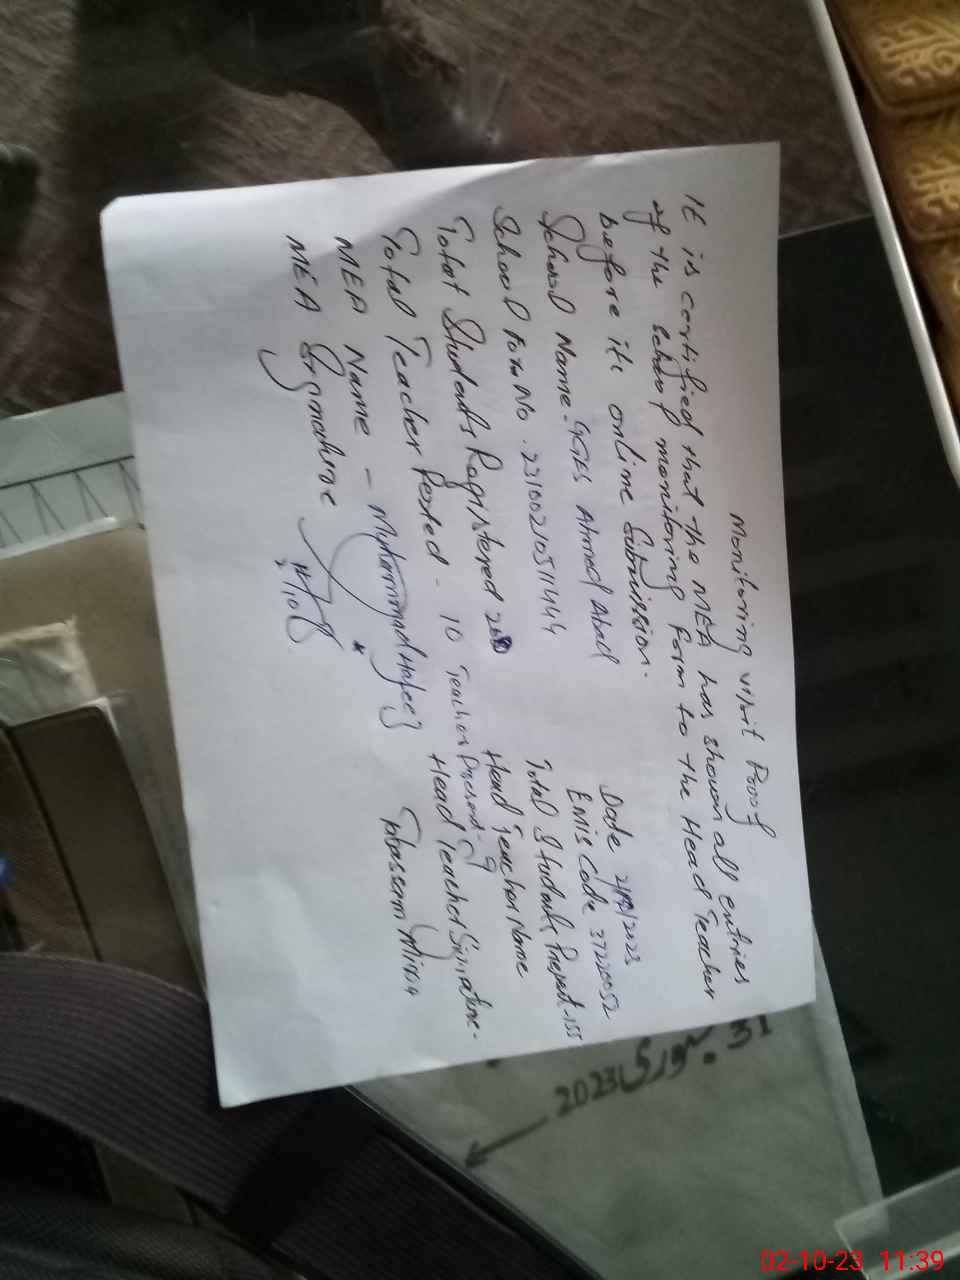 Monitoring visit Proof
It is certified that the MEA has shown all entries
of the school monitoring Form to the Head Teacher
before it online Submission.
Date 2/10/2023
School Name. GGES Ahmed Abad
EMIS Code 37220052
School Form No.
Total Students Present - 155
Total Students Registered
Head Teacher Name
Total Teacher Posted - 10 Teacher Present - 9
Head Teacher Signature -
MEA Name - Muhammad Hafeez
Tabassam
MEA Signature
2/10
31 جنوری 2023
02-10-23 11:39